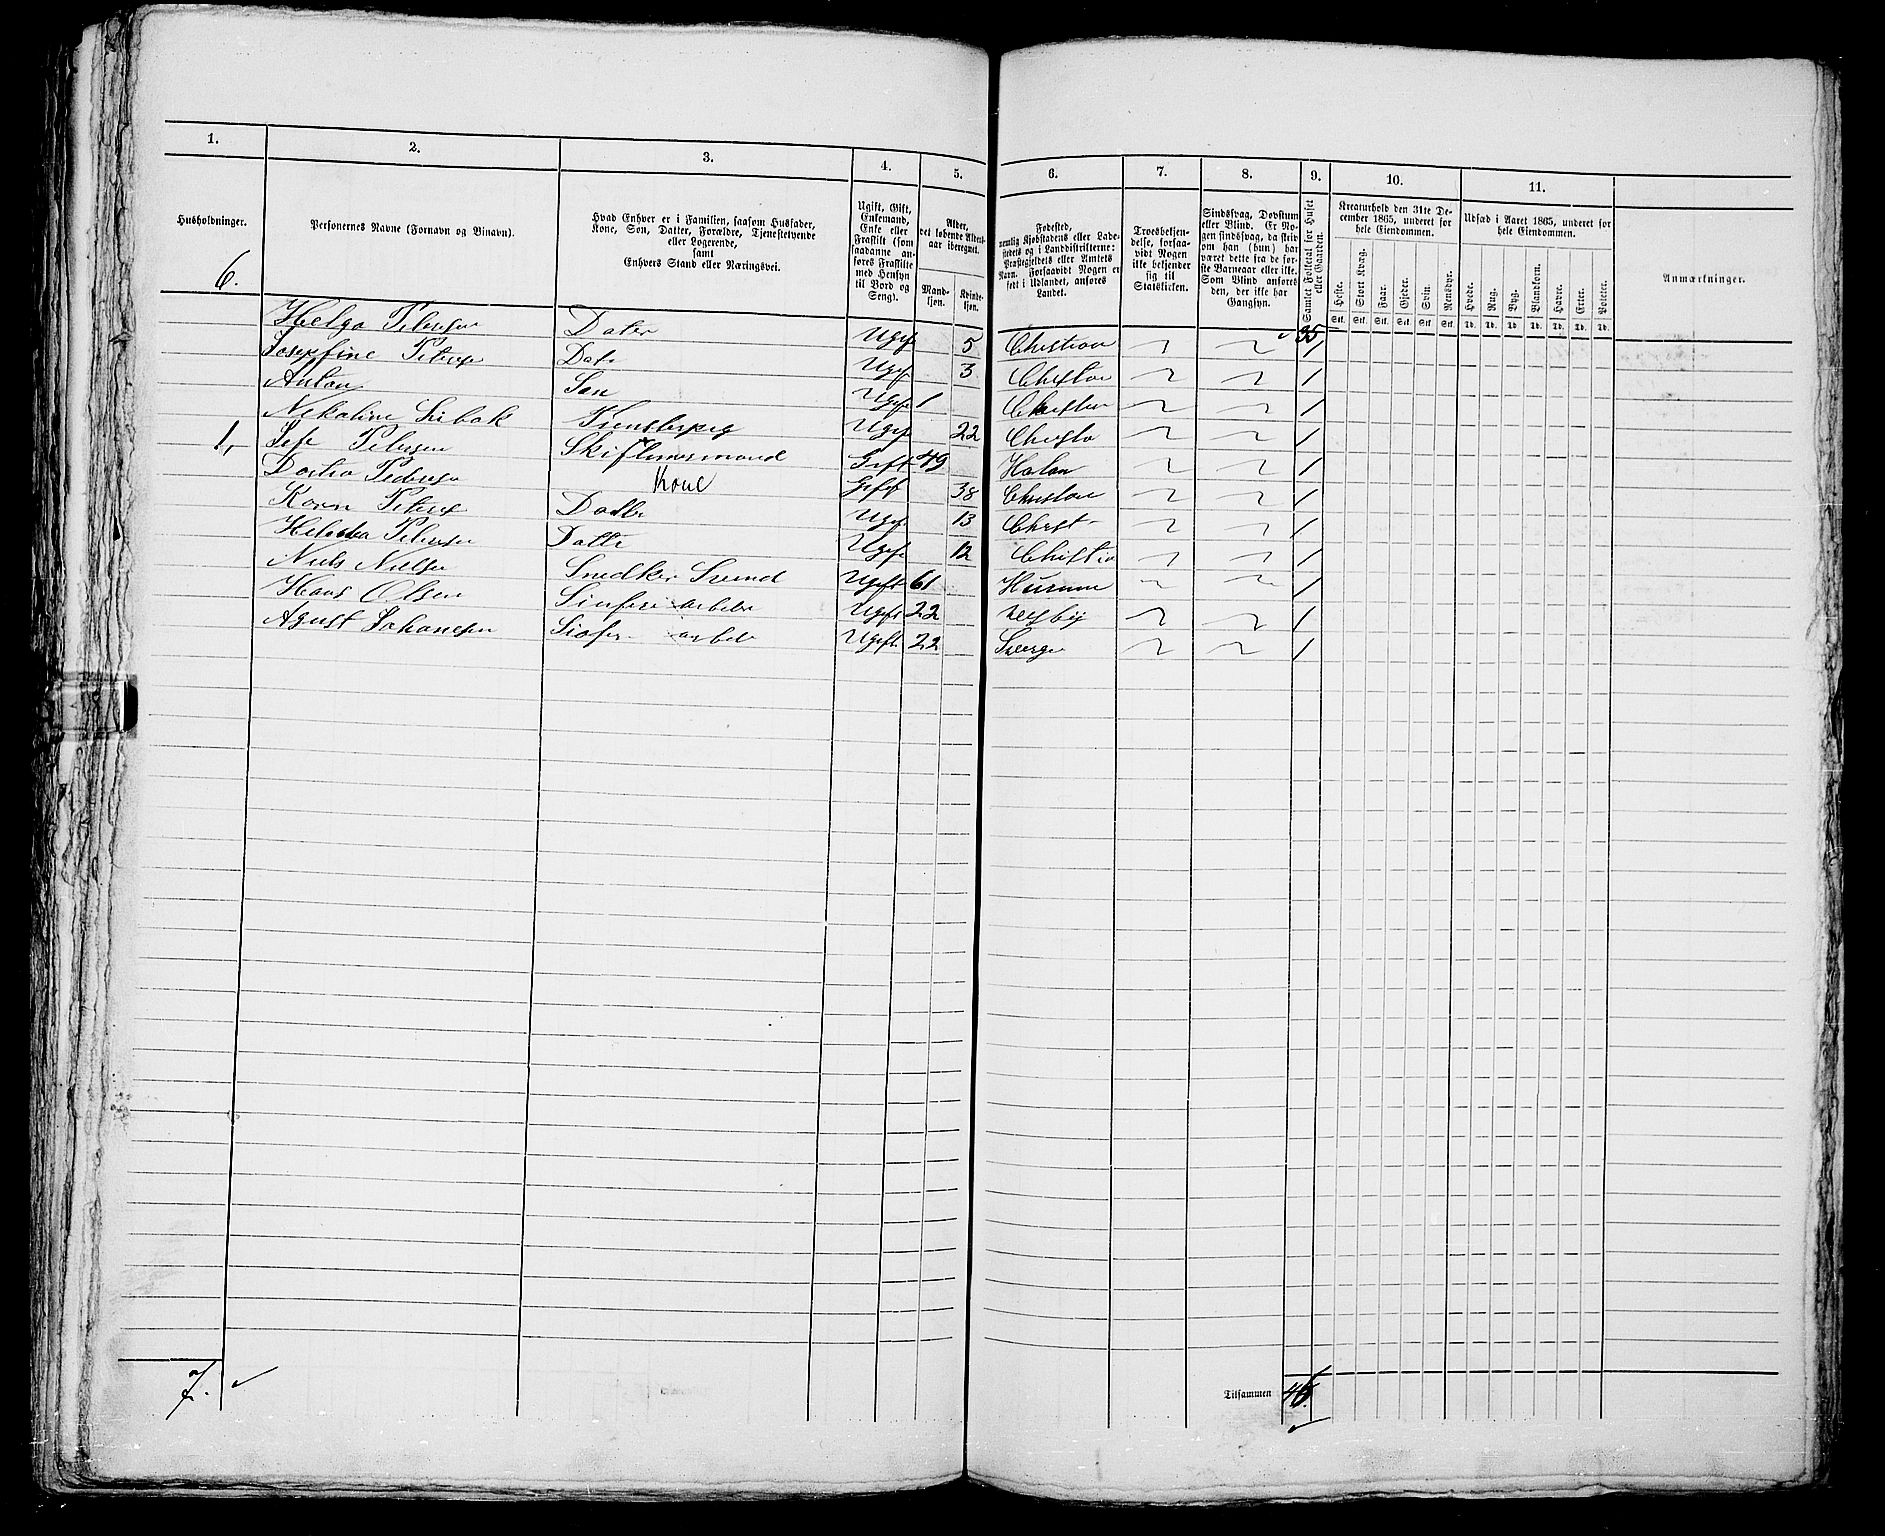 1. 2. 3. 4. 5. 6. 7. 8. 9. 10. 11.
Husholdninger.
Personernes Navne (Fornavn og Vinavn).
Hvad Enhver er i Familien, saasom Husfader,
Kone, Søn, Datter, Forældre, Tjenestetyende
eller Logerende,
samt
Enhvers Stand eller Næringsvei.
Ugift, Gift,
Enkemand,
Enke eller
Fraskilt (som
saadanne an-
føres Fraskilte
med Hensyn
til Bord og
Seng).
Alder,
det løbende Alders-
aar iberegnet.
Mand-
kjøn.
Kvinde-
kjøn.
Fødested,
nemlig Kjøbstadens eller Lade-
stedets og i Landdistrikterne:
Præstegjeldets eller Amtets
Navn. Forsaavidt Nogen er
født i Udlandet, anføres
Landet.
Troesbekjen-
delse, forsaa-
vidt Nogen
ikke bekjender
sig til
Statskirken.
Sindssvag, Døvstum
eller Blind. Er No-
gen sindssvag, da skriv
om han (hun) har
været dette fra de før-
ste Barneaar eller ikke.
Som Blind anføres
den, der ikke har
Gangsyn.
Samlet Folketal for Huset
eller Gaarden.
Kreaturhold den 31te De-
cember 1865, underet for
hele Eiendommen.
Heste. Stort Kvæg. Faar. Gjeder. Svin. Rensdyr.
Stk. Stk. Stk. Stk. Stk. Stk.
Udsæd i Aaret 1865, underet for
hele Eiendommen.
Hvede. Rug. Byg. Blandkorn. Havre. Erter. Poteter.
Td. Td. Td. Td. Td. Td. Td.
Anmærkninger.
6. 35
Helga Petersen Dater Ugif 5 Christian 1
Josepfine Petersen Date Ugif 3 Christia 1
Anton Søn Ugif 1 Christia 1
Ugif 22 Christia 1
1, Petersen Gift 49 1
Pedersen Kone Gift 38 Christian 1
Karen Petersen Datter Ugif 13 Christ 1
Petersen Datte Ugif 12 Christia 1
Niels Nielsen Snedker Svend Ugift 61 1
Hans Olsen arbeder Ugift 22 1
Agust Johanesen arbede Ugift 22 Sverge 1
7.
Tilsammen 46.